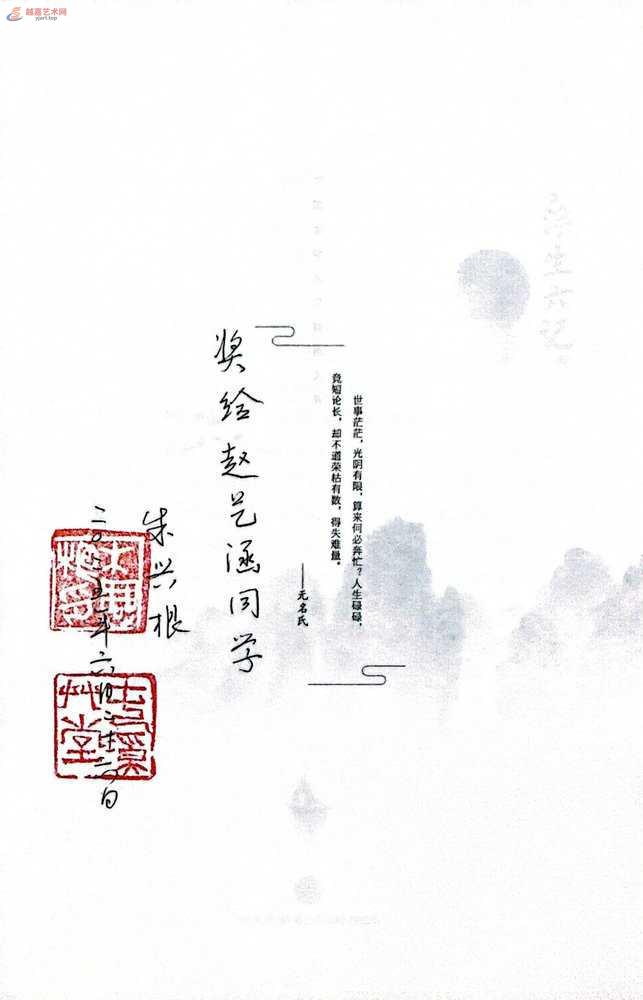 越嘉艺术网
yjart.top
世事茫茫，光阴有限，算来何必奔忙？人生碌碌，
竞短论长，却不道荣枯有数，得失难量。
——无名氏
奖给赵艺涵同学
朱兴根
二〇二五年六月